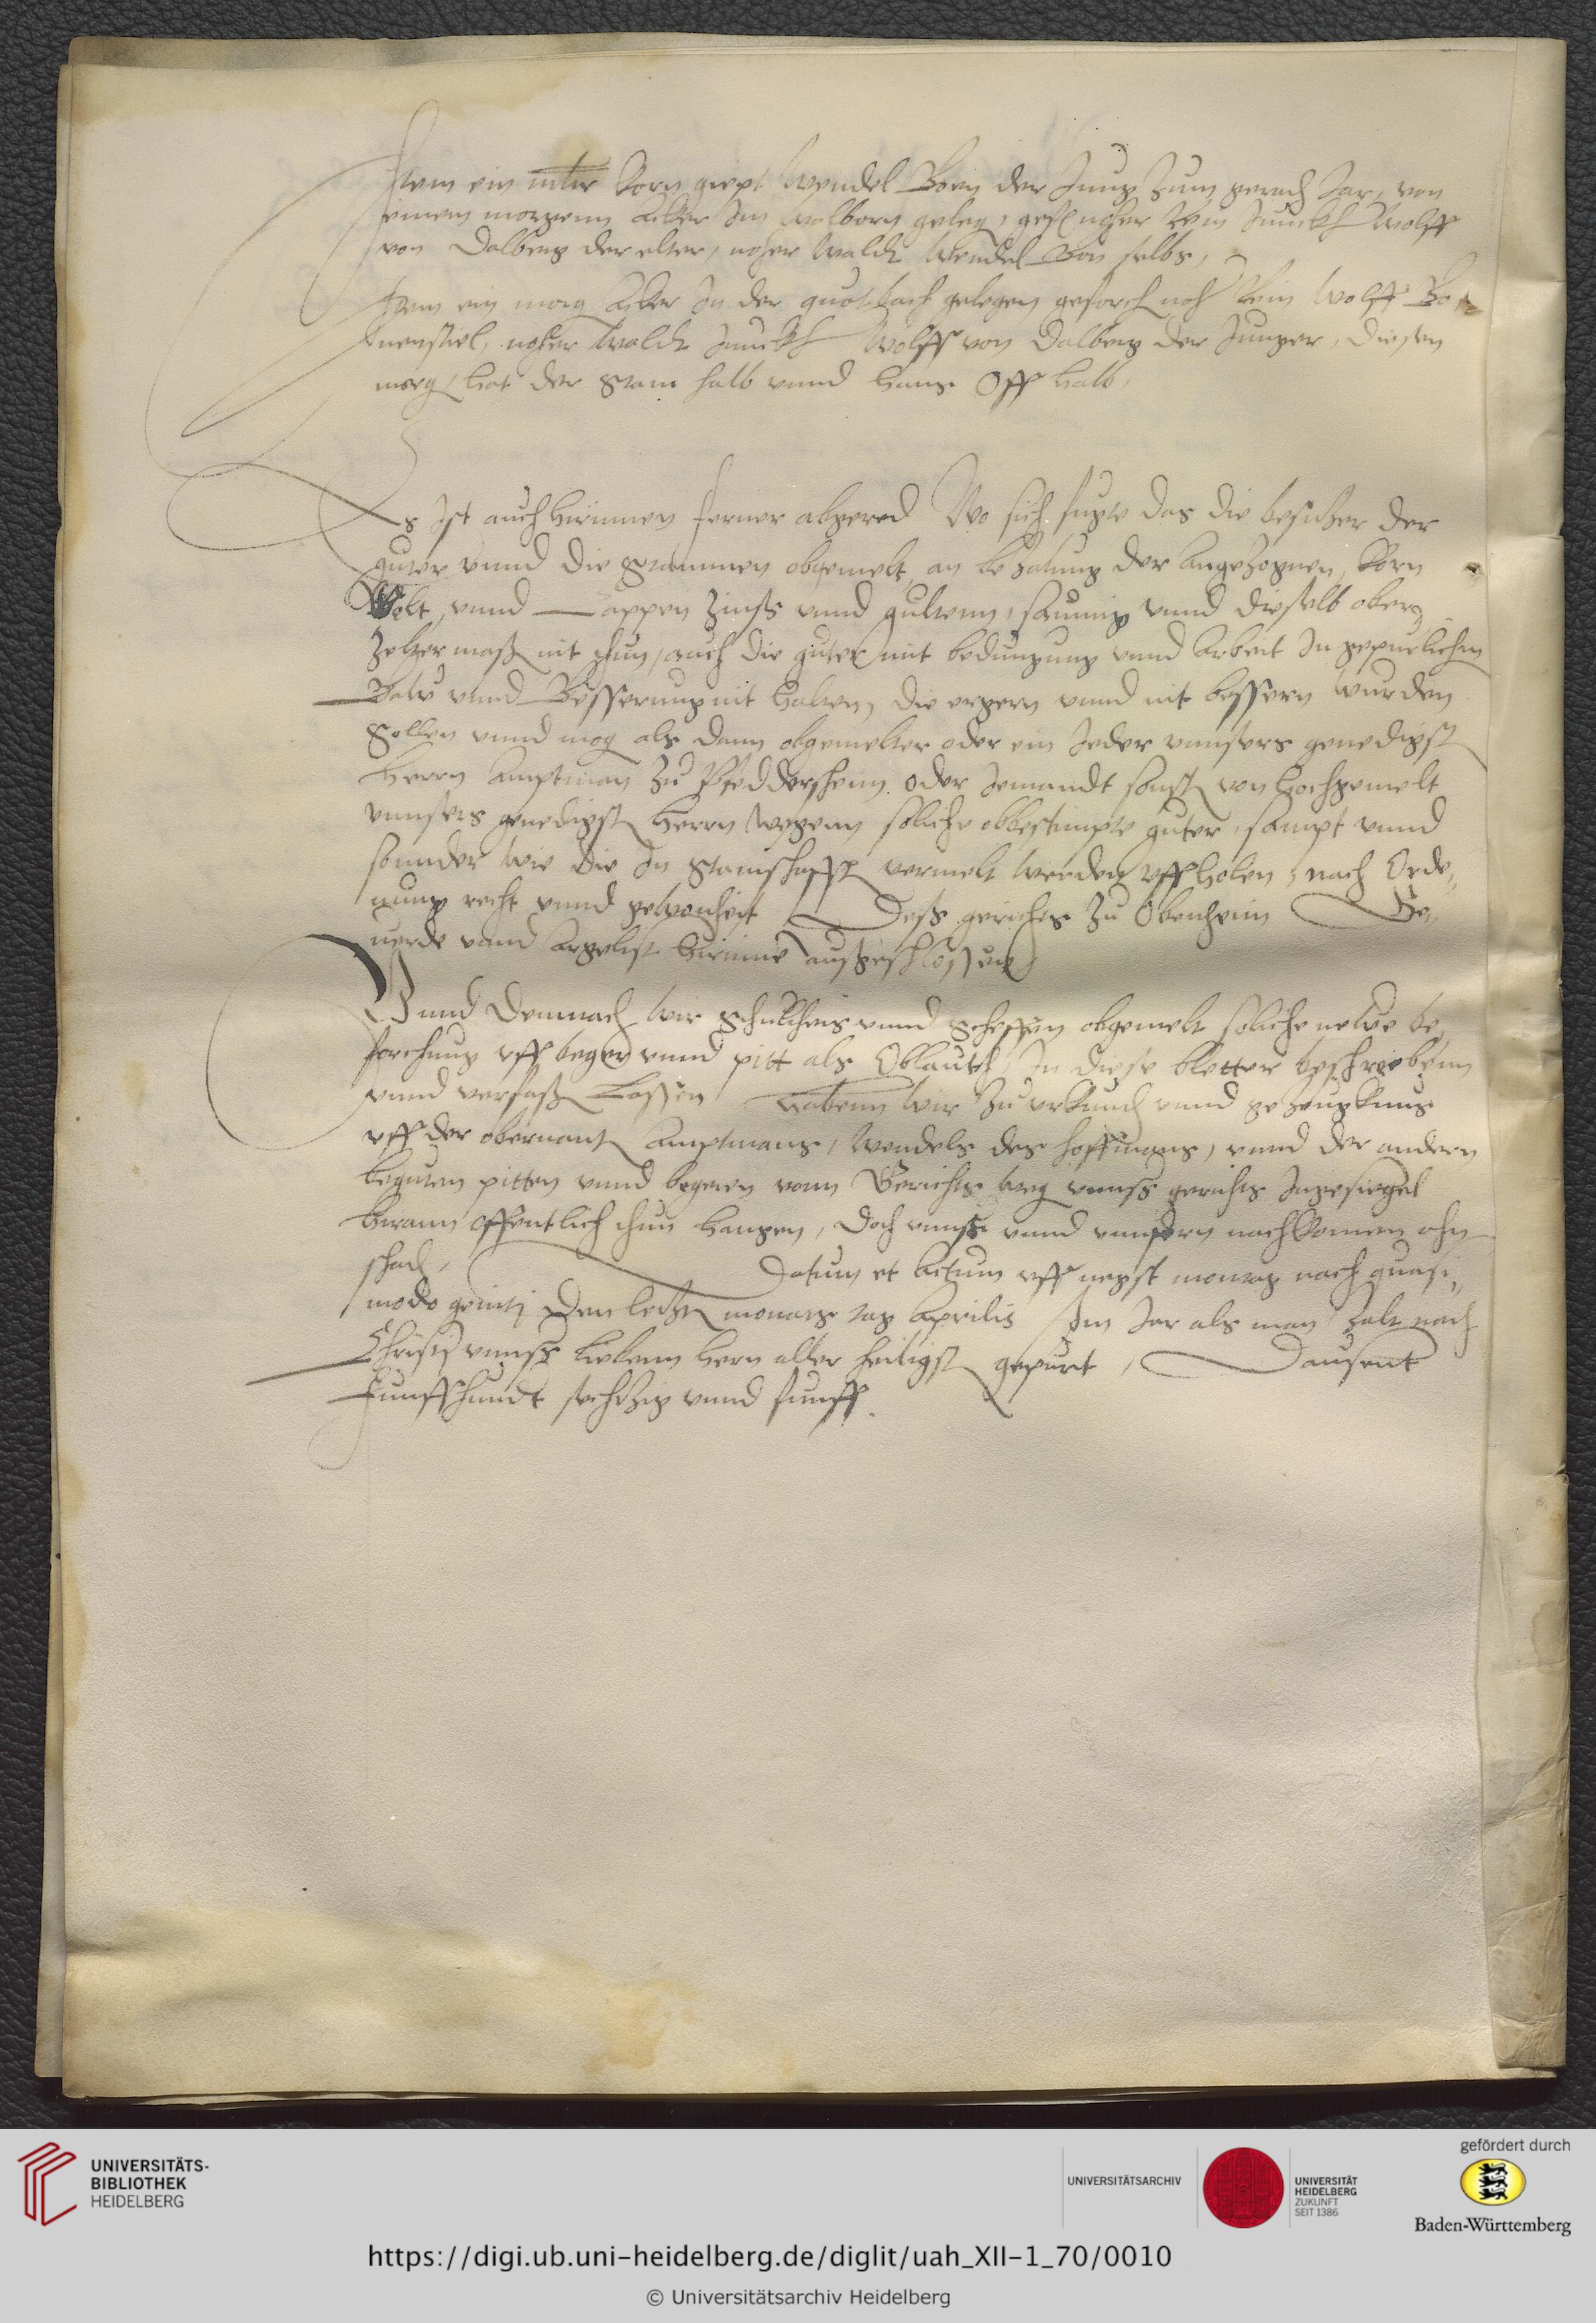 Item ein mltr Korn giept Wendel Born der Jung zum gerach Jar, von
einem morgenn Acker Im Walborn geleg, gefh noher Rein Junckh Wolff
von Dalberg der elter, noher Waldt Wendel Born selbs,
Item ein morg Acker In der quotbach gelegen geforch noh Rein Wolff Bo
nenstiel, noher Waldt Junckh Wolff von Dalberg der Junger, diesen
morg hat der Stam halb vnnd Hans Off halb,
Es Ist auch hirinnen ferner abgered Wo sich fugte das die besitzer der
guter vnnd die Stammen obgemelt an bezalung der Angezognen Korn
Gelt vnnd Cappen Zinß vnnd gultenn, saumig vnnd dieselb ober
zelter maß nit thun, auch die guter mit bedungung vnnd Arbeit In gepurlichen
Baw vnnd Besserung nit halten, die ergern vnnd nit bessern wurden
Sollen vnnd mog als dann obgemelter oder ein Jeder vnnsers genedigst
Herrn Amptman zu Pfeddersheim oder Jemandt sonst von hochgemelt
vnnsers genedigst Herrn wegenn soliche obbestimpte guter, sampt vnnd
sonnder wie die In Stamschafft vermelt werden vffholen, nach Orde„
nung recht vnnd gewonheit Deß gerichts zu Obenheim Ge„
uerde vnnd Argelist hirinne außgeschlossen
Vnnd Demnach wir Schultheis vnnd Scheffen obgemelt soliche newe be„
forchung vff beger vnnd pitt als Oblauth, In diese bletter beschreebenn
vnnd verfaß Lossen habenn wir zu vrkundt vnnd gezeugknus
vff der obernant Amptmans, Wendels des Hoffmans, vnnd der andern
beguten pitten vnnd begeren vonn Gerichts weg vnnß gerichts Ingesiegel
hirann offentlich thun hangen, Doch vnnß vnnd vnnsern nachkomen ohn
schad, Datum et Actum vff negst montag nach quasi„
modo geniti Den letzt monats tag Aprilis Im Jar als man Zalt nach
Christi vnnß liebenn Hern aller heiligst gepurt, Dausent
Funffhundt sechtzig vnnd funff.
UNIVERSITÄTS-
BIBLIOTHEK
HEIDELBERG
UNIVERSITÄTSARCHIV
UNIVERSITÄT
HEIDELBERG
ZUKUNFT
SEIT 1386
gefördert durch
Baden-Württemberg
https://digi.ub.uni-heidelberg.de/diglit/uah_XII-1_70/0010
© Universitätsarchiv Heidelberg